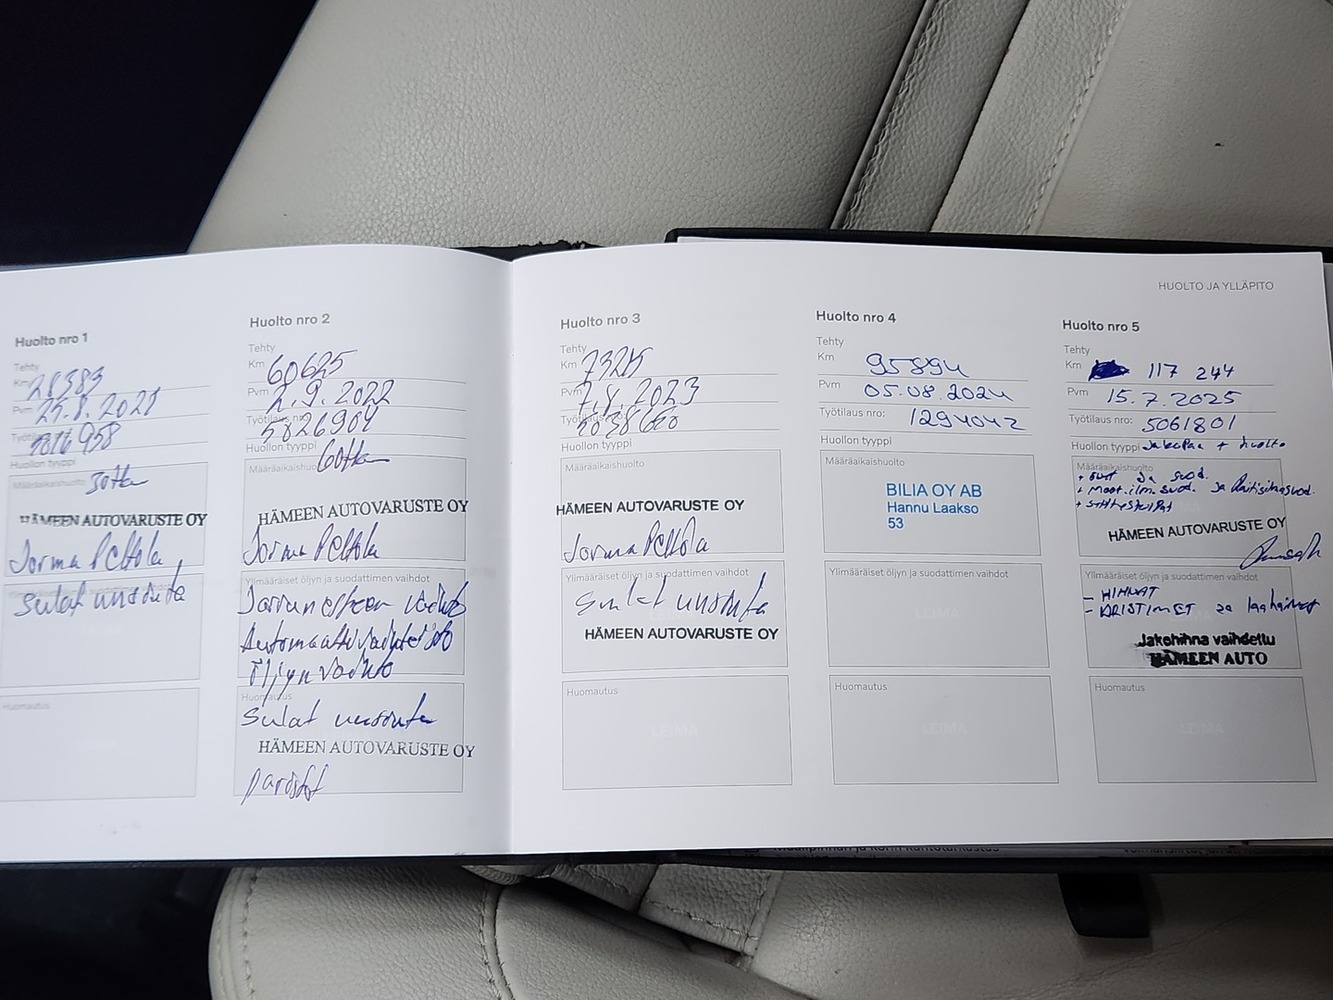 HUOLTO JA YLLÄPITO
Huolto nro 1
Tehty
Km 28383
Pvm
958
Huollon tyyppi
Määräaikaishuolto 30tkm
HÄMEEN AUTOVARUSTE OY
Jorma Peltola
Sulat uusittu
Huomautus
Huolto nro 2
Tehty
Km 60625
Pvm 2.9.2022
Työtilaus nro:
5826904
Huollon tyyppi 60tkm
Määräaikaishuolto
HÄMEEN AUTOVARUSTE OY
Jorma Peltola
Ylimääräiset öljyn ja suodattimen vaihdot
Jarrunesteen vaihto
Automaattivaihteisto
Öljyn vaihto
Huomautus
Sulat uusittu
HÄMEEN AUTOVARUSTE OY
Huolto nro 3
Tehty
Km
Pvm 7.8.2023
Työtilaus nro:
Huollon tyyppi
Määräaikaishuolto
HÄMEEN AUTOVARUSTE OY
Jorma Peltola
Ylimääräiset öljyn ja suodattimen vaihdot
Sulat uusittu
HÄMEEN AUTOVARUSTE OY
Huomautus
LEIMA
Huolto nro 4
Tehty
Km 95894
Pvm 05.08.2024
Työtilaus nro: 1294042
Huollon tyyppi
Määräaikaishuolto
BILIA OY AB
Hannu Laakso
53
Ylimääräiset öljyn ja suodattimen vaihdot
LEIMA
Huomautus
LEIMA
Huolto nro 5
Tehty
Km 117 244
Pvm 15.7.2025
Työtilaus nro: 5061801
Huollon tyyppi Jakopää + huolto
Määräaikaishuolto
+ öljyt ja suod.
+ moot.ilm.suod. ja Raitisilmasuod.
HÄMEEN AUTOVARUSTE OY
Ylimääräiset öljyn ja suodattimen vaihdot
- HIHNAT
- KIRISTIMET ja
Jakohihna vaihdettu
HÄMEEN AUTO
Huomautus
LEIMA